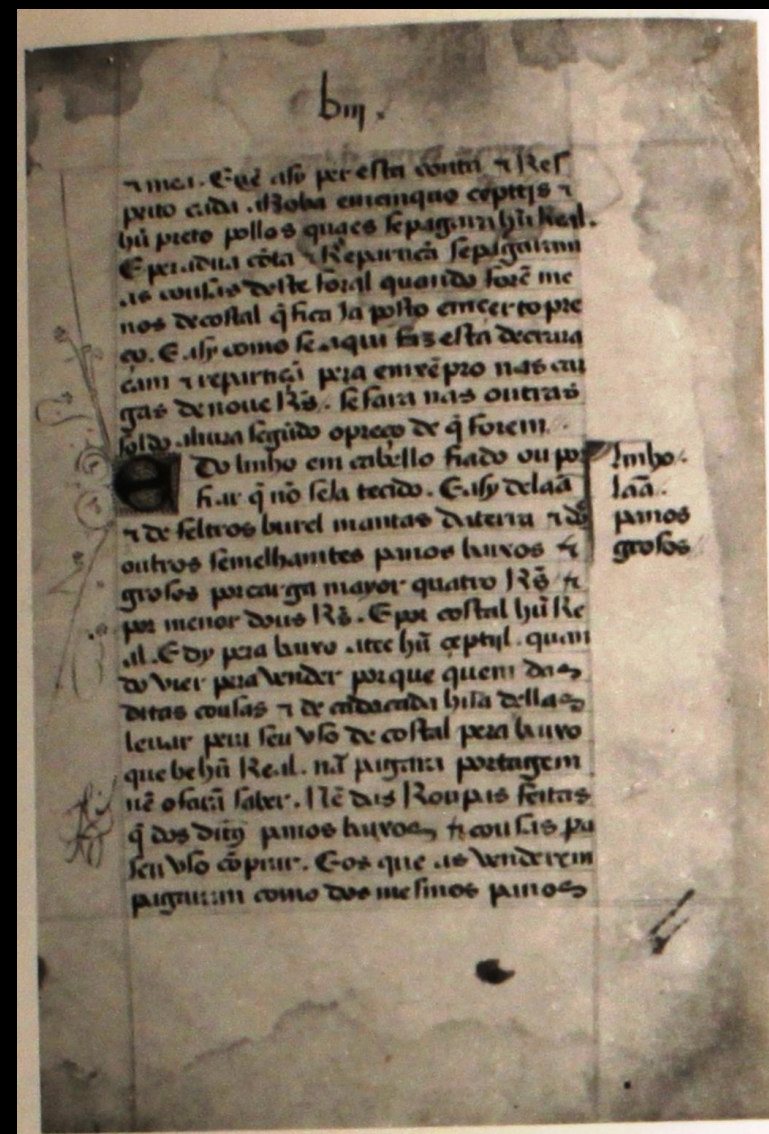 biij.
⁊ mea. E que asy per esta conta ⁊ Res
peito cada .aRoba em cinquo çeptijs ⁊
hũ preto pollos quaes se pagara hũ Real.
E per adita cõta ⁊ Repartiçã se pagaram
as cousas deste foral quando forẽ me
nos de costal q̃ fica ja posto em çerto pre
ço. E asy como se aqui faz esta decrara
cam ⁊ repartiçã pera emxẽpro nas car
gas de noue Rs̃. se fara nas outras
soldo aliura segũdo opreço de q̃ forem.
E Do linho em cabello fiado ou por
fiar q̃ nõ seia tecido. E asy de laã
⁊ de feltros burel mantas da terra ⁊ dos
outros semelhamtes panos baixos ⁊
grosos por carga mayor quatro Rs̃ ⁊
por menor dous Rs̃. E por costal hũ Re
al. E dy pera baixo ate hũ çeptijl. quan
do vier pera vender porque quem das
ditas cousas ⁊ de cada cada hũa dellas
leuar pera seu vso de costal pera baixo
que he hũ Real. nã pagara portagem
nẽ o fara saber. Nẽ das Roupas feitas
q̃ dos ditos panos baixos ⁊ cousas pa
seu vso cõprar. E os que as venderem
pagaram como dos mesmos panos
linho.
laã.
panos
grosos